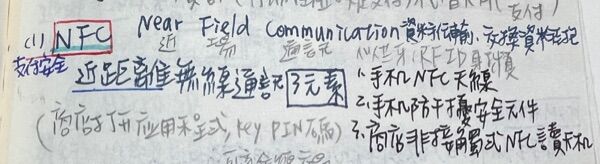 支付)
(1) NFC Near Field Communication 資料傳輸、交換資料
近 場 通訊
支付安全 似藍牙、RFID
近距離無線通訊 3元素 1.手机NFC天線
2.手机防干擾安全元件
(商店打開应用程式, key PIN碼) 3.商店非接触式NFC讀卡机